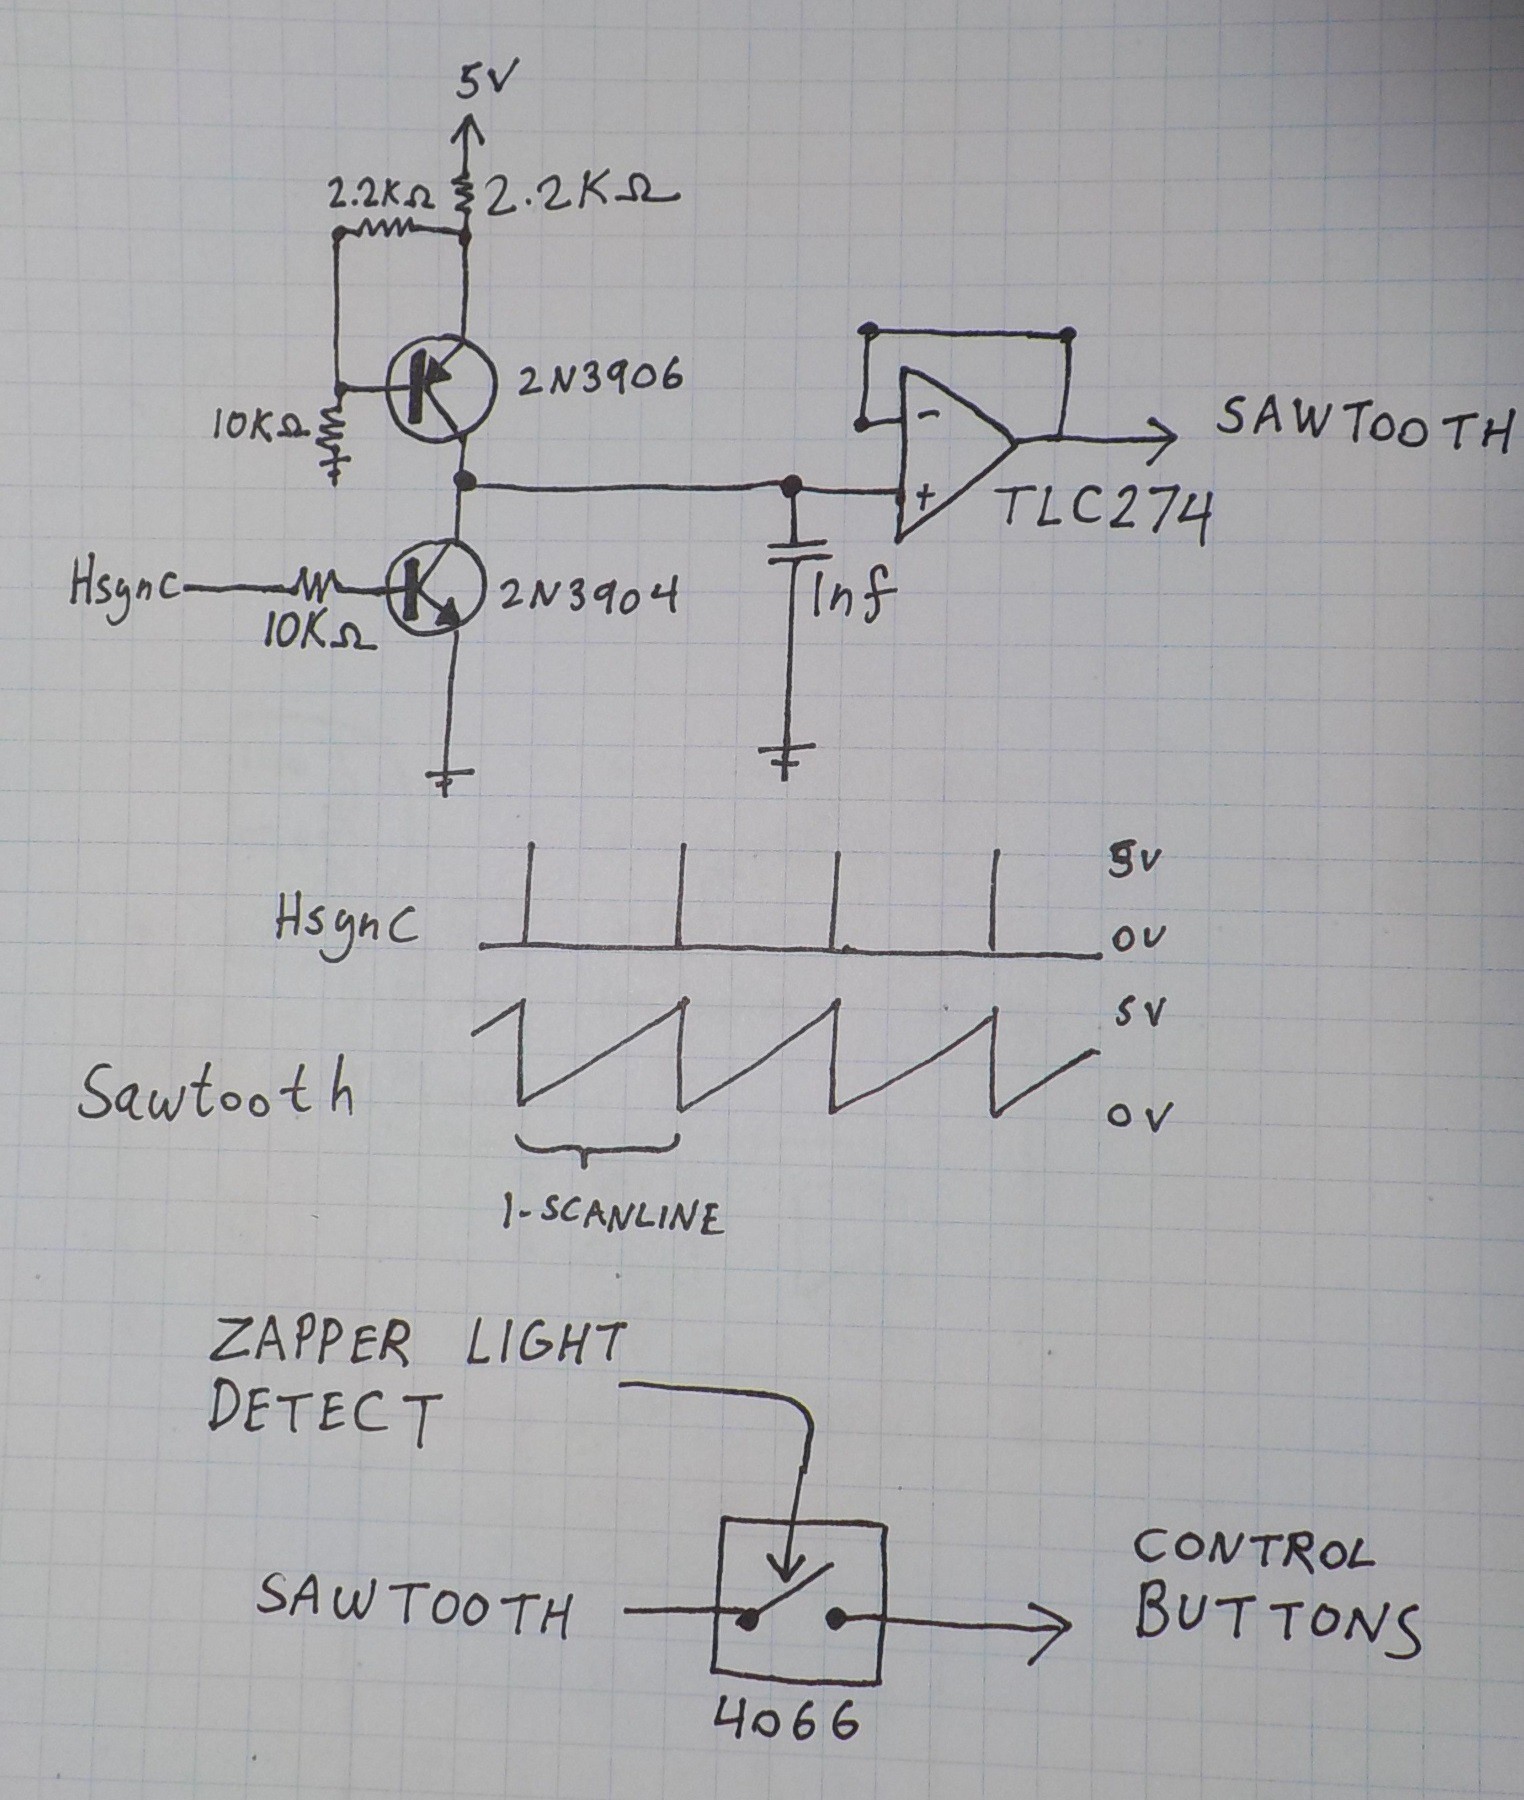 5V
2.2KΩ
2.2KΩ
2N3906
10KΩ
-
SAWTOOTH
+
TLC274
Hsync
10KΩ
2N3904
1nf
5V
Hsync
0V
5V
Sawtooth
0V
1-SCANLINE
ZAPPER LIGHT
DETECT
SAWTOOTH
CONTROL
BUTTONS
4066